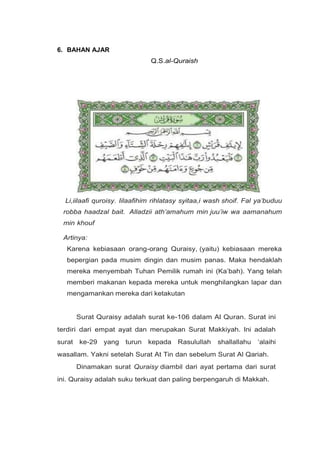 6. BAHAN AJAR
Q.S.al-Quraish
سورة قريش
بسم الله الرحمن الرحيم
لإيلاف قريش ۝ إيلافهم رحلة الشتاء والصيف ۝
فليعبدوا رب هذا البيت ۝ الذي أطعمهم
من جوع وآمنهم من خوف ۝
Li,iilaafi quroisy. Iilaafihim rihlatasy syitaa,i wash shoif. Fal ya'buduu
robba haadzal bait. Alladzii ath'amahum min juu'iw wa aamanahum
min khouf
Artinya:
Karena kebiasaan orang-orang Quraisy, (yaitu) kebiasaan mereka
bepergian pada musim dingin dan musim panas. Maka hendaklah
mereka menyembah Tuhan Pemilik rumah ini (Ka'bah). Yang telah
memberi makanan kepada mereka untuk menghilangkan lapar dan
mengamankan mereka dari ketakutan
Surat Quraisy adalah surat ke-106 dalam Al Quran. Surat ini
terdiri dari empat ayat dan merupakan Surat Makkiyah. Ini adalah
surat ke-29 yang turun kepada Rasulullah shallallahu 'alaihi
wasallam. Yakni setelah Surat At Tin dan sebelum Surat Al Qariah.
Dinamakan surat Quraisy diambil dari ayat pertama dari surat
ini. Quraisy adalah suku terkuat dan paling berpengaruh di Makkah.